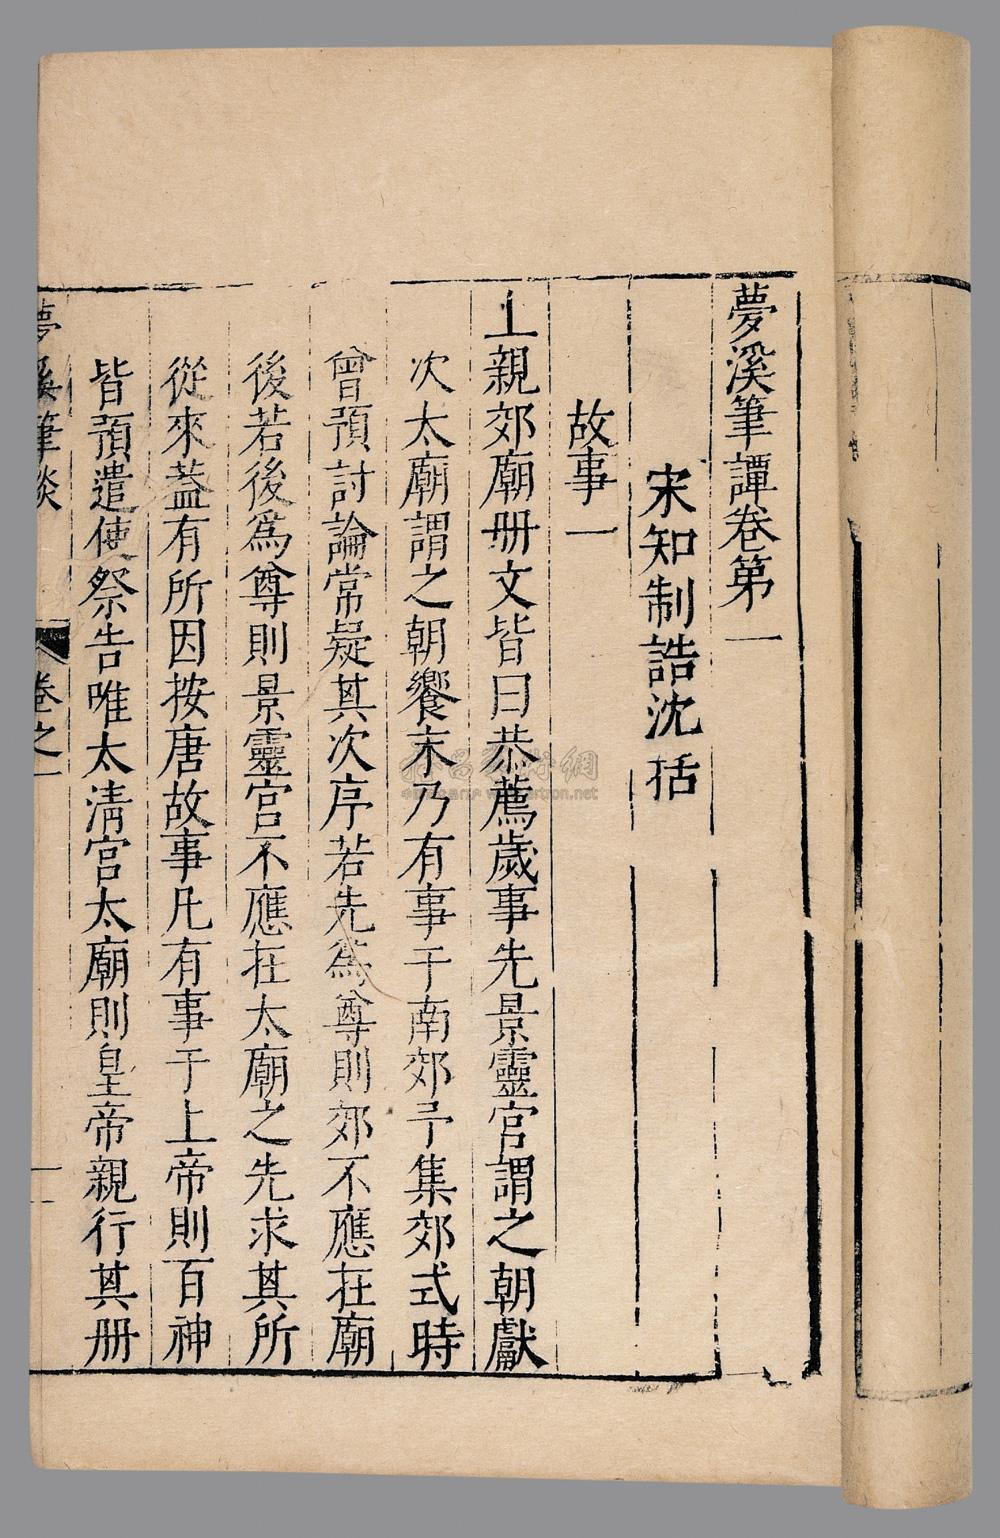 夢溪筆譚卷第一
宋知制誥沈括
故事一
上親郊廟册文皆曰恭薦歲事先景靈宫謂之朝獻
次太廟謂之朝饗末乃有事于南郊予集郊式時
曾預討論常疑其次序若先爲尊則郊不應在廟
後若後爲尊則景靈宫不應在太廟之先求其所
從來蓋有所因按唐故事凡有事于上帝則百神
皆預遣使祭告唯太清宫太廟則皇帝親行其册
夢溪筆談 卷之一 一